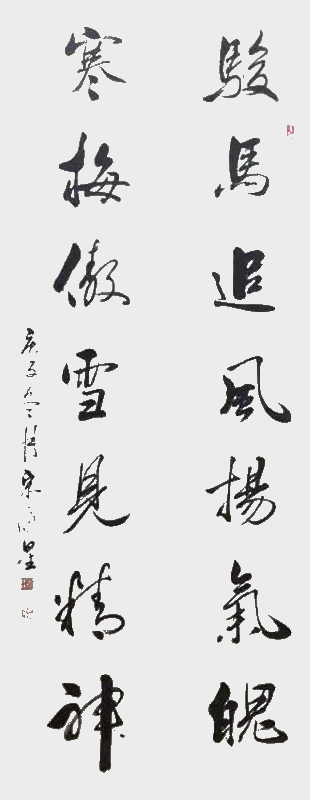 駿馬追風揚氣魄
寒梅傲雪見精神
庚子冬